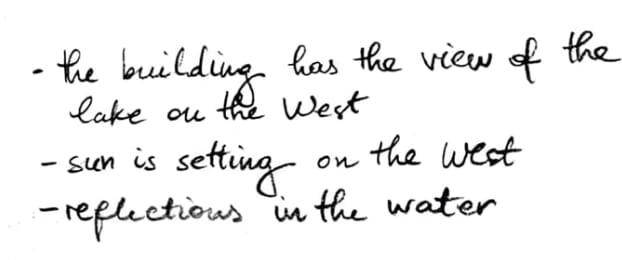 - the building has the view of the
lake on the West
- sun is setting on the West
- reflections in the water